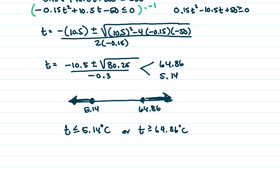 (-0.15t² + 10.5t - 50 ≤ 0) · -1    0.15t² - 10.5t + 50 ≥ 0
t = -(10.5) ± √(10.5)² - 4(-0.15)(-50) / 2(-0.15)
t = -10.5 ± √80.25 / -0.3 < 64.86
5.14
5.14    64.86
t ≤ 5.14°C or t ≥ 64.86°C